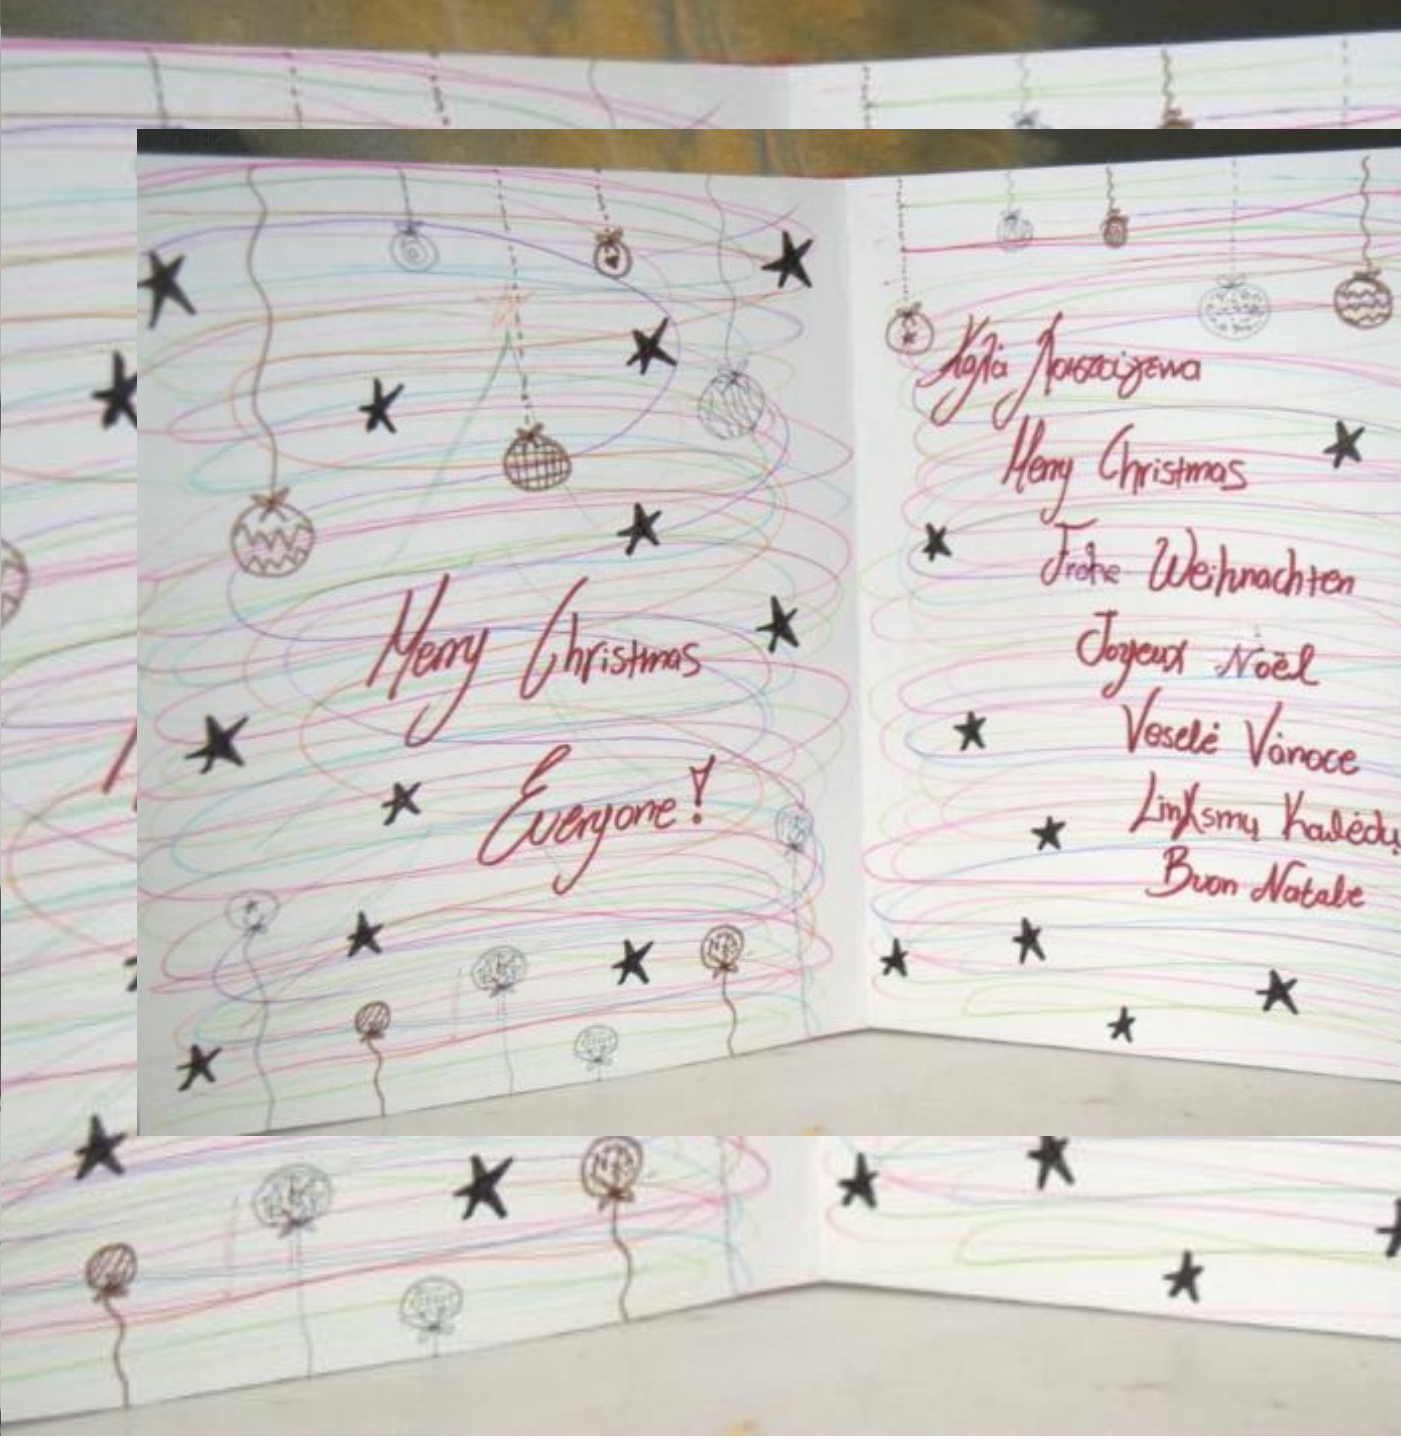 Merry Christmas
Everyone!
Καλά Χριστούγεννα
Merry Christmas
Frohe Weihnachten
Joyeux Noël
Veselé Vánoce
Linksmų Kalėdų
Buon Natale